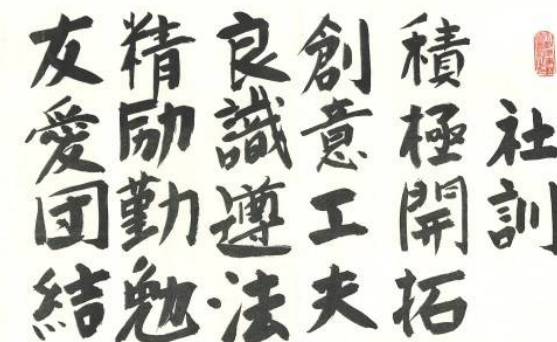 社訓
積極開拓
創意工夫
良識遵法
精励勤勉
友愛団結